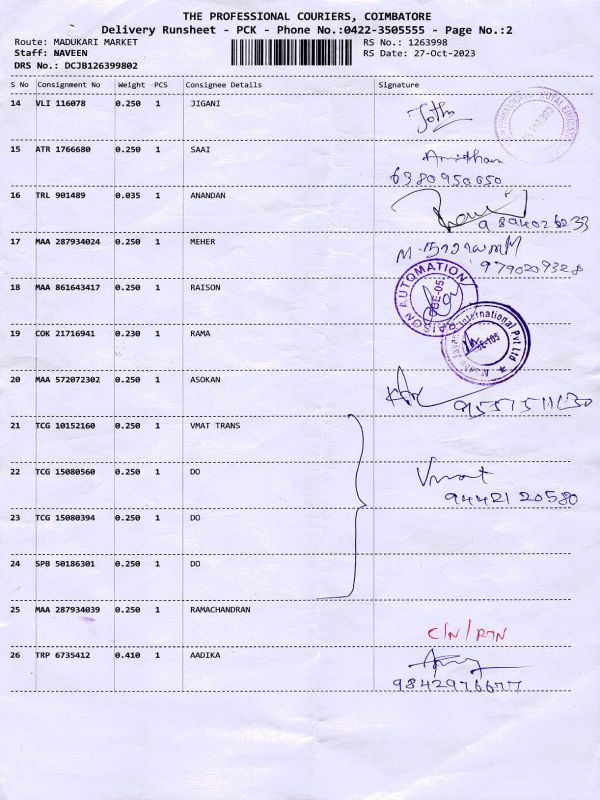 THE PROFESSIONAL COURIERS, COIMBATORE
Delivery Runsheet - PCK - Phone No.:0422-3505555 - Page No.:2
Route: MADUKARI MARKET RS No.: 1263998
Staff: NAVEEN RS Date: 27-Oct-2023
DRS No.: DCJB126399802
S No Consignment No Weight PCS Consignee Details Signature
14 VLI 116078 0.250 1 JIGANI
15 ATR 1766680 0.250 1 SAAI
6380950650
16 TRL 901489 0.035 1 ANANDAN
9894026233
17 MAA 287934024 0.250 1 MEHER
9790209328
18 MAA 861643417 0.250 1 RAISON
RAISON AUTOMATION
19 COK 21716941 0.230 1 RAMA
International Pvt Ltd
20 MAA 572072302 0.250 1 ASOKAN
21 TCG 10152160 0.250 1 VMAT TRANS
22 TCG 15080560 0.250 1 DO
Vmat
9442120580
23 TCG 15080394 0.250 1 DO
24 SPB 50186301 0.250 1 DO
25 MAA 287934039 0.250 1 RAMACHANDRAN
C/N/RTN
26 TRP 6735412 0.410 1 AADIKA
9842976677